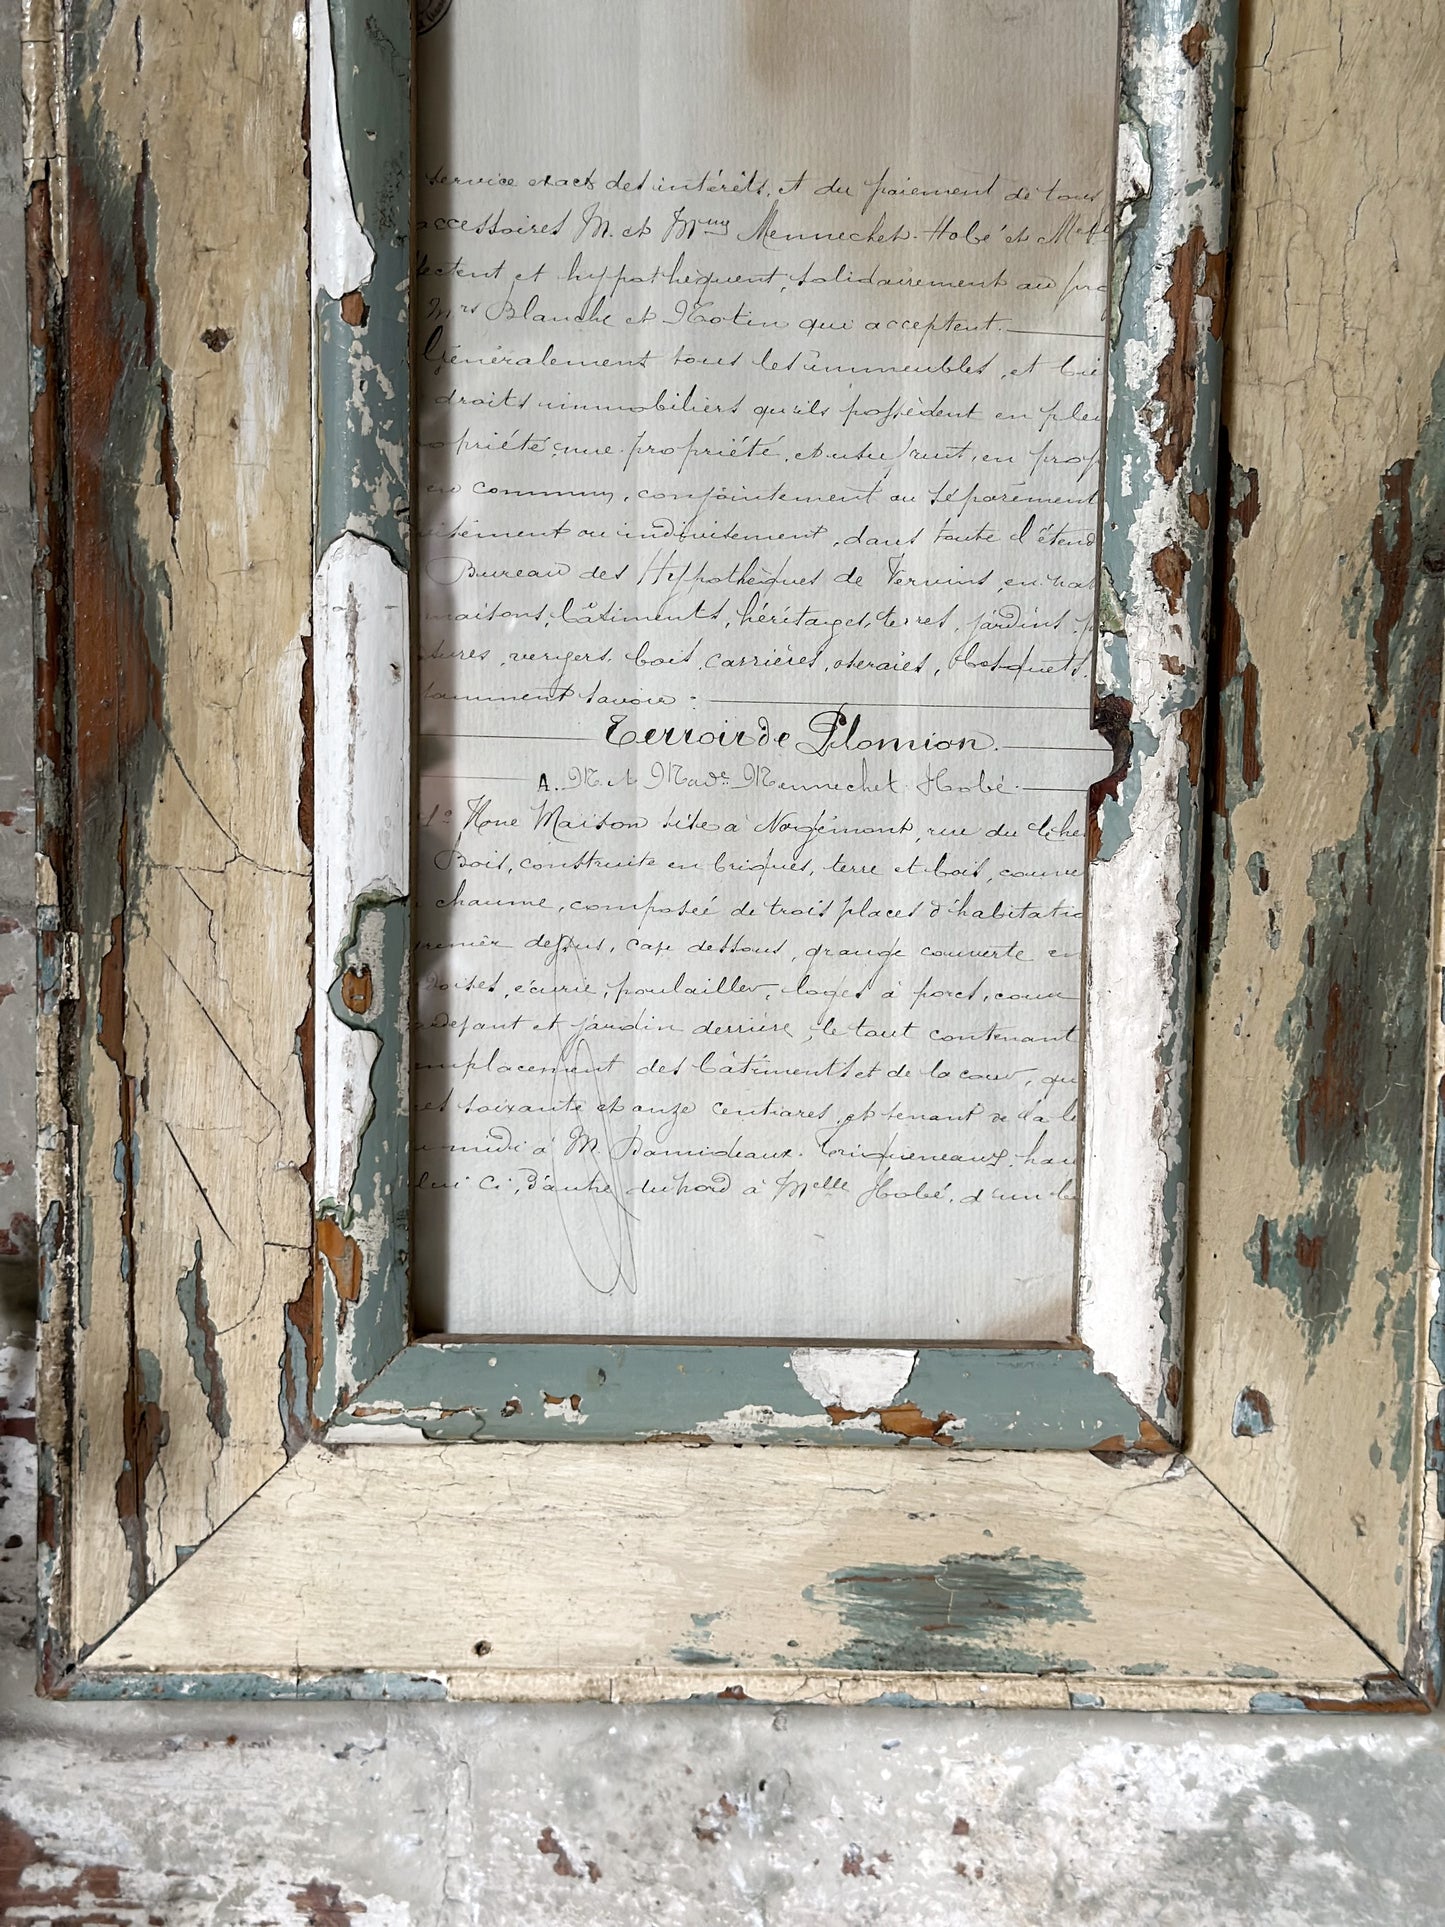 service exact des intérêts, et du paiement de tous
accessoires M. et Mme Mennechet-Hobé et Melle
fectent et hypothèquent, solidairement au pro
Mrs Blanche et Notin qui acceptent.
Généralement tous les immeubles, et bie
droits immobiliers qu'ils possèdent en plei
opriété, nue-propriété, et usufruit, en prop
en commun, conjointement ou séparément
visément ou indivisément, dans toute l'étend
Bureau des Hypothèques de Vervins, en nat
maisons, bâtiments, héritages, terres, jardins, p
tures, vergers, bois, carrières, oseraies, bosquets.
tamment savoir :
Terroir de Plomion.
A. M. et Made Mennechet-Hobé.
1° Une Maison sise à Nogémont, rue du
Bois, construite en briques, terre et bois, couve
chaume, composée de trois places d'habitatio
grenier dessus, cave dessous, grange couverte en
doises, écurie, poulailler, loges à porcs, cour
devant et jardin derrière, le tout contenant
emplacement des bâtiments et de la cour, qu
res soixante et onze centiares, et tenant de
midi à M. Damideaux-Criqueneaux, hau
lui ci, d'autre du nord à Melle Hobé, d'un b